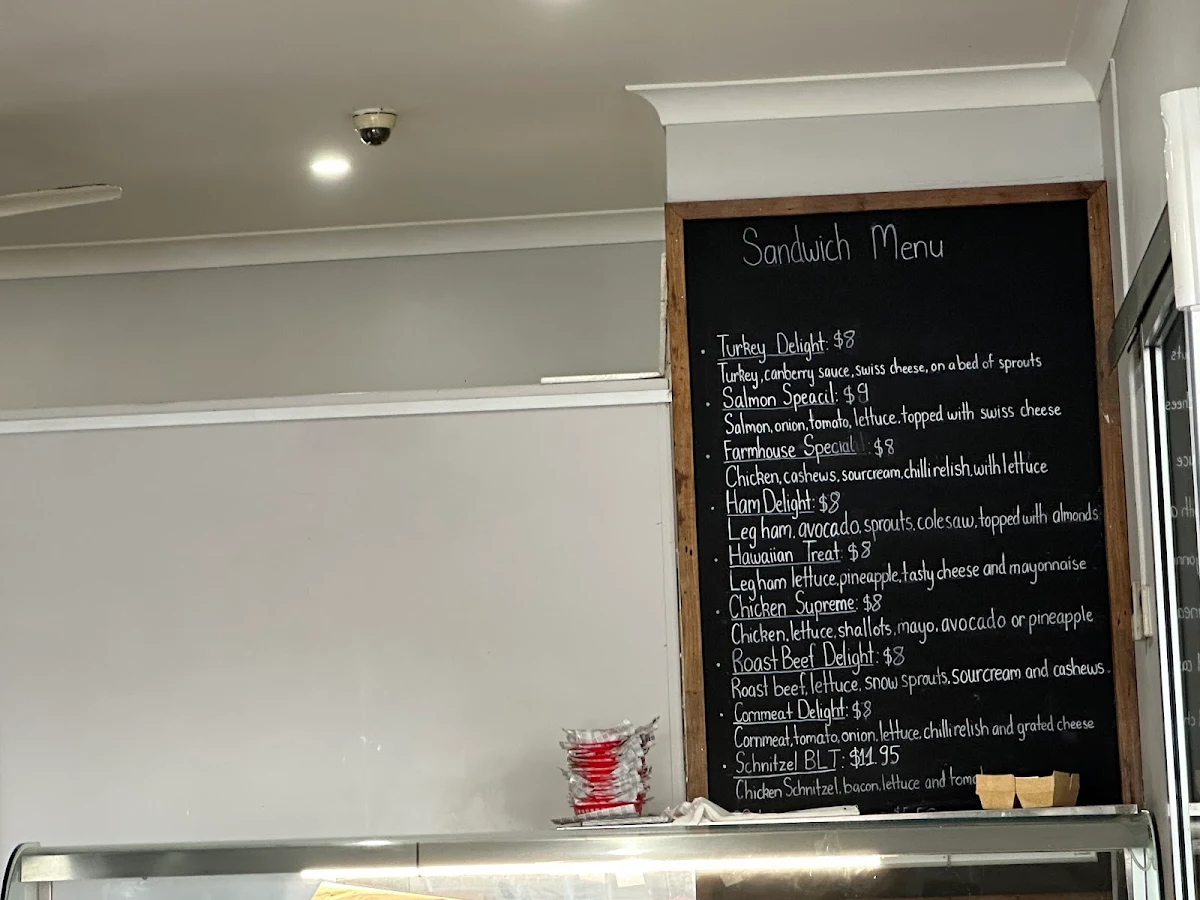 Sandwich Menu
• Turkey Delight: $8
Turkey, canberry sauce, swiss cheese, on a bed of sprouts
• Salmon Speacil: $9
Salmon, onion, tomato, lettuce, topped with swiss cheese
• Farmhouse Special: $8
Chicken, cashews, sourcream, chilli relish, with lettuce
• Ham Delight: $8
Leg ham, avocado, sprouts, colesaw, topped with almonds
• Hawaiian Treat: $8
Leg ham lettuce, pineapple, tasty cheese and mayonnaise
• Chicken Supreme: $8
Chicken, lettuce, shallots, mayo, avocado or pineapple
• Roast Beef Delight: $8
Roast beef, lettuce, snow sprouts, sourcream and cashews.
• Cornmeat Delight: $8
Cornmeat, tomato, onion, lettuce, chilli relish and grated cheese
• Schnitzel BLT: $11.95
Chicken Schnitzel, bacon, lettuce and